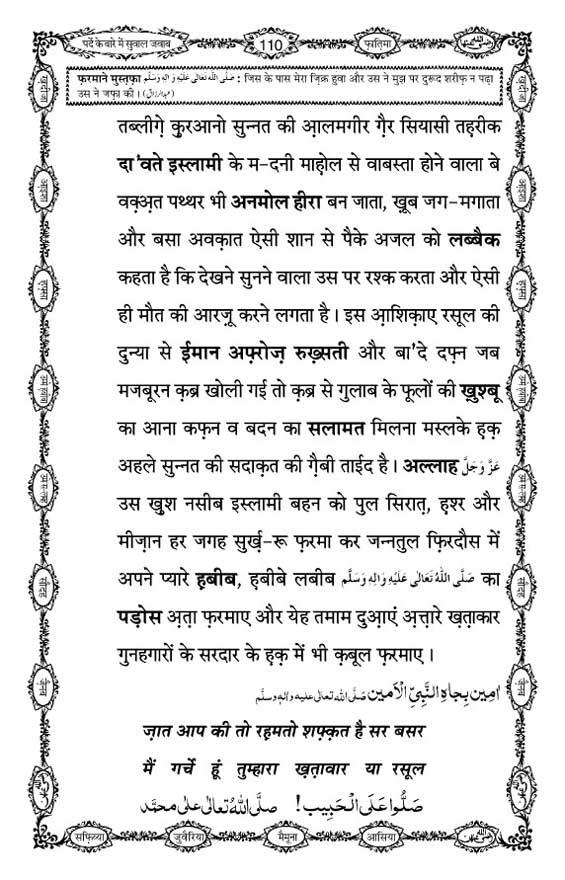 पर्दे के बारे में सुवाल जवाब
110
फ़ातिमा
फ़रमाने मुस्तफ़ा صَلَّى اللّٰهُ تَعَالٰى عَلَيْهِ وَاٰلِهٖ وَسَلَّم : जिस के पास मेरा ज़िक्र हुवा और उस ने मुझ पर दुरूद शरीफ़ न पढ़ा
उस ने जफ़ा की। (عبدالرزاق)
तब्लीग़े क़ुरआनो सुन्नत की आ़लमगीर ग़ैर सियासी तह़रीक
दा'वते इस्लामी के म-दनी माह़ोल से वाबस्ता होने वाला बे
वक़्अ़त पथ्थर भी अनमोल हीरा बन जाता, ख़ूब जग-मगाता
और बसा अवक़ात ऐसी शान से पैके अजल को लब्बैक
कहता है कि देखने सुनने वाला उस पर रश्क करता और ऐसी
ही मौत की आरज़ू करने लगता है। इस आ़शिक़ाए रसूल की
दुन्या से ईमान अफ़्रोज़ रुख़्सती और बा'दे दफ़्न जब
मजबूरन क़ब्र खोली गई तो क़ब्र से गुलाब के फूलों की ख़ुश्बू
का आना कफ़न व बदन का सलामत मिलना मस्लके ह़क़
अहले सुन्नत की सदाक़त की ग़ैबी ताईद है। अल्लाह عَزَّوَجَلَّ
उस ख़ुश नसीब इस्लामी बहन को पुल सिरात़, ह़श्र और
मीज़ान हर जगह सुर्ख़-रू फ़रमा कर जन्नतुल फ़िरदौस में
अपने प्यारे ह़बीब, ह़बीबे लबीब صَلَّى اللّٰهُ تَعَالٰى عَلَيْهِ وَاٰلِهٖ وَسَلَّم का
पड़ोस अ़ता फ़रमाए और येह तमाम दुआ़एं अ़त्त़ारे ख़त़ाकार
गुनहगारों के सरदार के ह़क़ में भी क़बूल फ़रमाए।
اٰمِين بِجَاهِ النَّبِيِّ الْاَمِين صَلَّى اللّٰه تعالىٰ عليه واٰلهٖ وسلَّم
ज़ात आप की तो रह़मतो शफ़्क़त है सर बसर
मैं गर्चे हूं तुम्हारा ख़त़ावार या रसूल
صَلُّوا عَلَى الْحَبِيب! صلَّى اللّٰهُ تعالىٰ علىٰ محمَّد
सफ़िय्या
जुवैरिया
मैमूना
आसिया